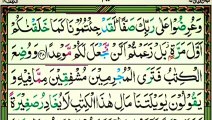 وَعُرِضُوْا عَلٰى رَبِّكَ صَفًّا ؕ لَقَدْ جِئْتُمُوْنَا كَمَا خَلَقْنٰكُمْ
اَوَّلَ مَرَّةٍۭ ؗ بَلْ زَعَمْتُمْ اَلَّنْ نَّجْعَلَ لَكُمْ مَّوْعِدًا ۝ وَوُضِعَ
الْكِتٰبُ فَتَرَى الْمُجْرِمِيْنَ مُشْفِقِيْنَ مِمَّا فِيْهِ وَ
يَقُوْلُوْنَ يٰوَيْلَتَنَا مَالِ هٰذَا الْكِتٰبِ لَا يُغَادِرُ صَغِيْرَةً